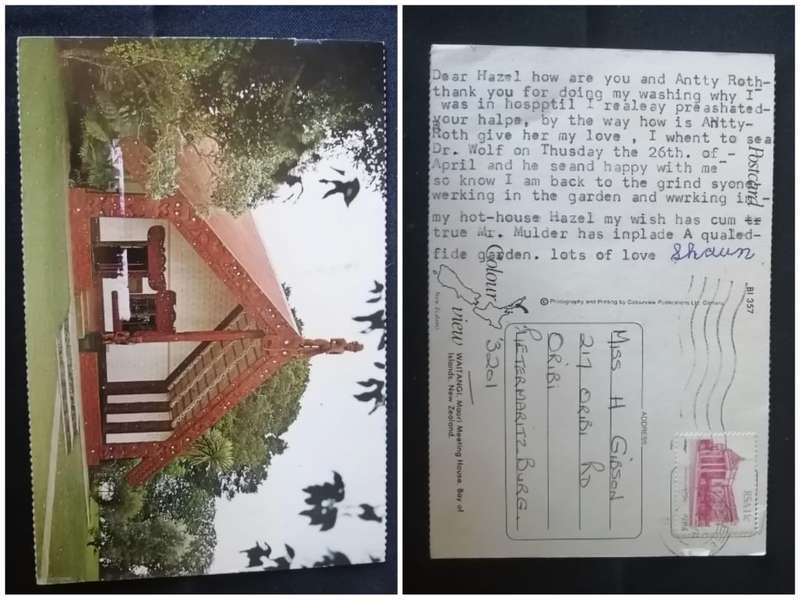 Dear Hazel how are you and Antty Roth-
thank you for doing my washing why I
was in hospptil I realeay preashated-
your halpe, by the way how is Antty-
Roth give her my love , I whent to sea
Dr. Wolf on Thusday the 26th. of -
April and he seand happy with me
so know I am back to the grind syoned
werking in the garden and wwrking in -
my hot-house Hazel my wish has cum tr
true Mr. Mulder has inplade A qualed-
fide garden. lots of love Shaun
Postcard
BI 357
© Photography and Printing by Colourview Publications Ltd.
Colour
view
New Zealand
WAITANGI. Maori Meeting House, Bay of
Islands, New Zealand.
ADDRESS
MISS H GIBSON
217 ORIBI RD
ORIBI
PIETERMARITZBURG.
3201
RSA 11c